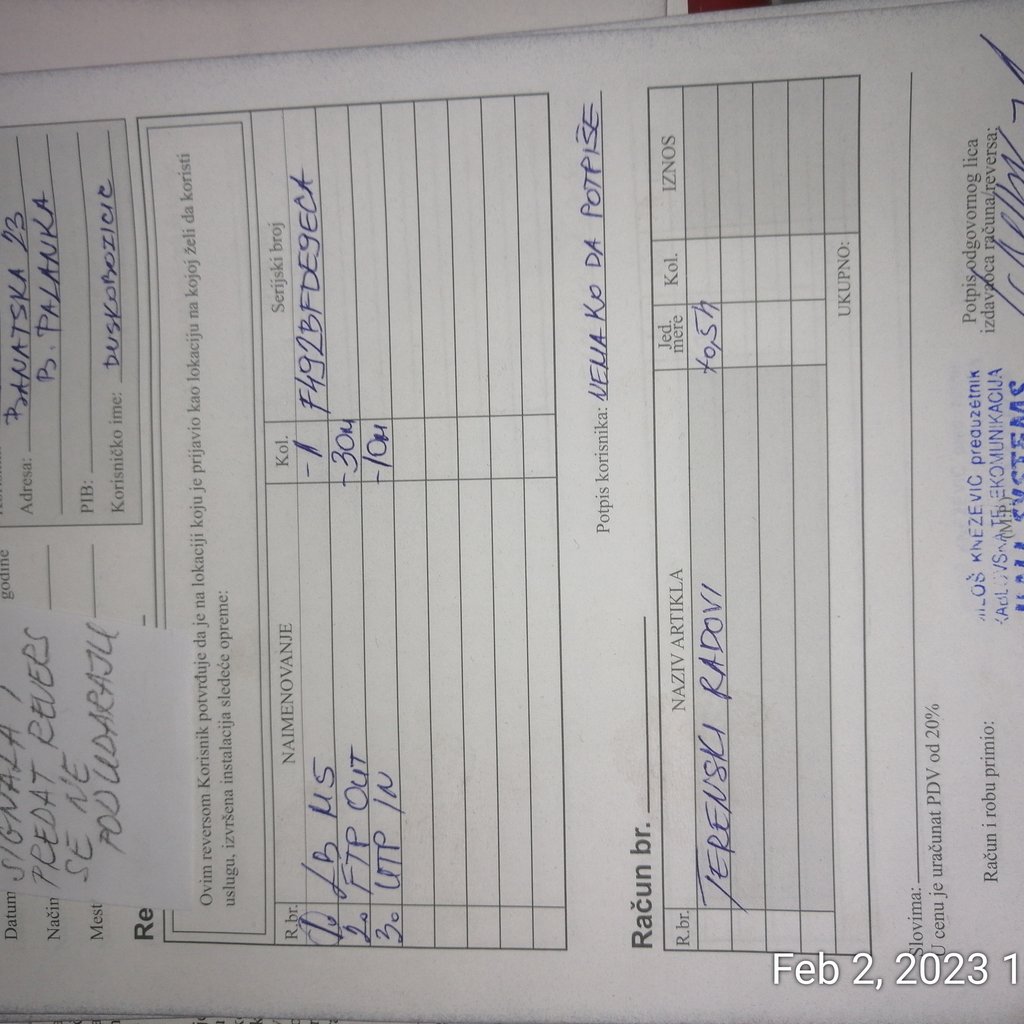 Adresa: BANATSKA 23
B. PALANKA
PIB:
Korisničko ime: DUSKOBOZICIC
godine
Datum
Način
Mest
SIGNALA!
PREDAT REVERS
SE NE
PODUDARAJU
Re
Ovim reversom Korisnik potvrđuje da je na lokaciji koju je prijavio kao lokaciju na kojoj želi da koristi
uslugu, izvršena instalacija sledeće opreme:
R.br. NAIMENOVANJE Kol. Serijski broj
1. LB M5 -1 F492BFDE9ECA
2. FTP OUT -30m
3. UTP IN -10m
Potpis korisnika: NEMA KO DA POTPIŠE
Račun br.
R.br. NAZIV ARTIKLA Jed. mere Kol. IZNOS
TERENSKI RADOVI +0,5h
UKUPNO:
Slovima:
U cenu je uračunat PDV od 20%
Račun i robu primio:
(M.P.)
Potpis odgovornog lica
izdavaoca računa/reversa:
MILOŠ KNEŽEVIĆ preduzetnik
SYSTEMS
Feb 2, 2023 1